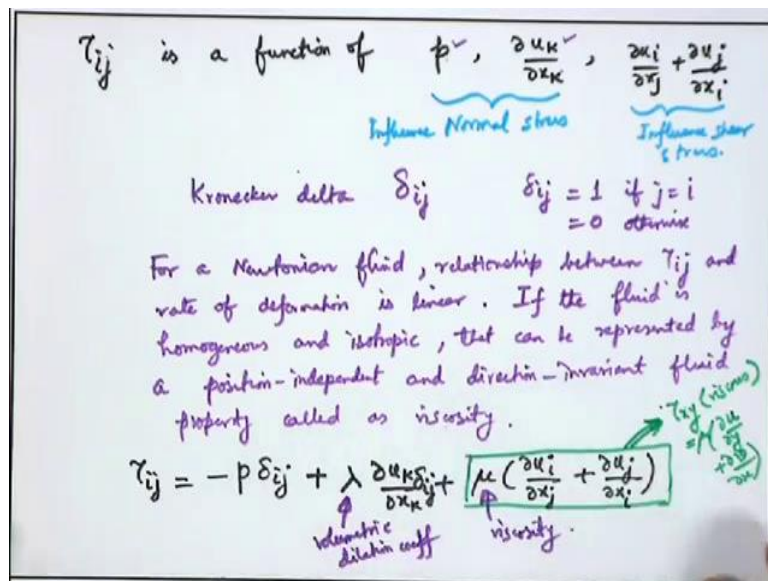 τij is a function of p, ∂uK/∂xK, ∂ui/∂xj + ∂uj/∂xi
Influence Normal stress
Influence shear stress.
Kronecker delta δij δij = 1 if j = i
= 0 otherwise
For a Newtonian fluid, relationship between τij and
rate of deformation is linear. If the fluid is
homogeneous and isotropic, that can be represented by
a position-independent and direction-invariant fluid
property called as viscosity.
τxy (viscous)
= μ(∂u/∂y
+ ∂v/∂x)
τij = -p δij + λ ∂uK/∂xK δij + μ(∂ui/∂xj + ∂uj/∂xi)
volumetric
dilation coeff
viscosity.